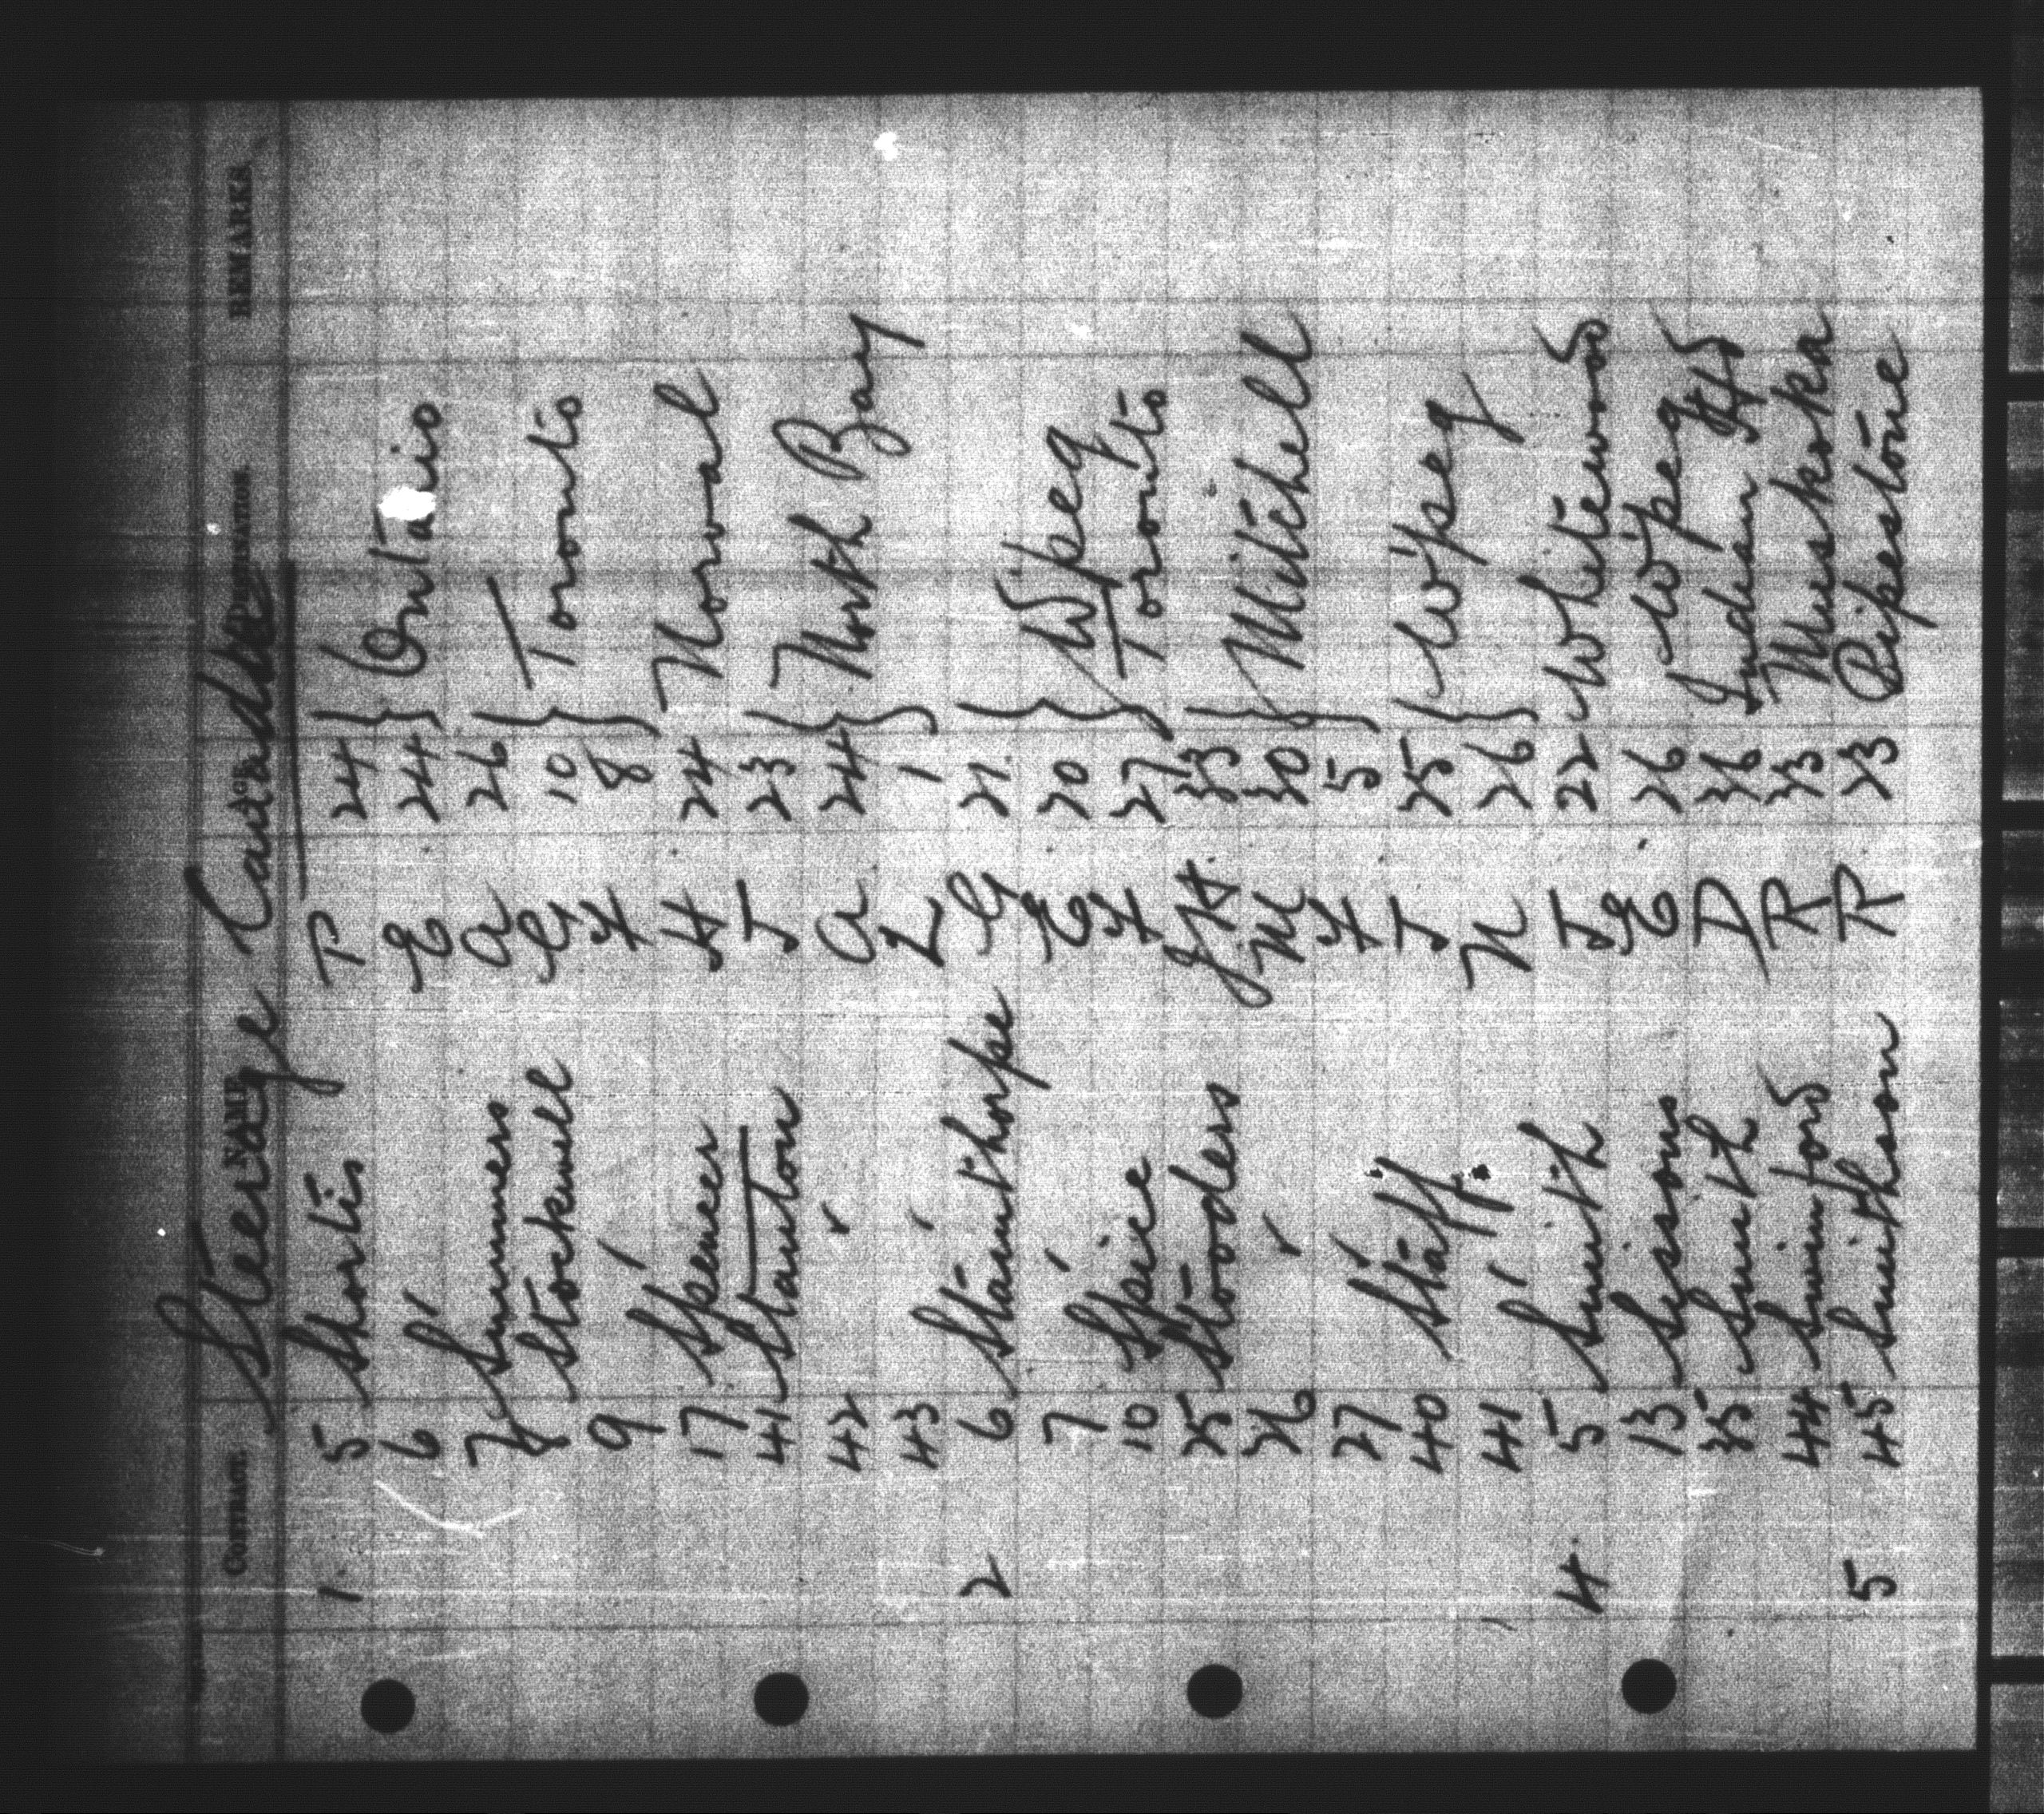 Steerage Canadian
CONTRACT NAME AGE DESTINATION REMARKS
1 5 Shortis T 24
6 S " E 24 Ontario
7 Summers A 26
8 Stockwell E 10 Toronto
9 " H 8
17 Spencer H 24 Norval
41 Staunton J 23
42 " A 24 North Bay
43 " L 1
2 6 Staunthorpe G 21
7 " E 20 W'peg
10 Spice H 27 Toronto
25 Stoders Jas 33
26 " M 30 Mitchell
27 " H 5
40 Staff J 25 W'peg
41 S " N 26
4 5 Smith J 22 Whitewood
13 Sissons E 26 W'peg
35 Smith D 36 Indian Hd
44 Swinford R 33 Muskoka
5 45 Smithson R 23 Pipestone